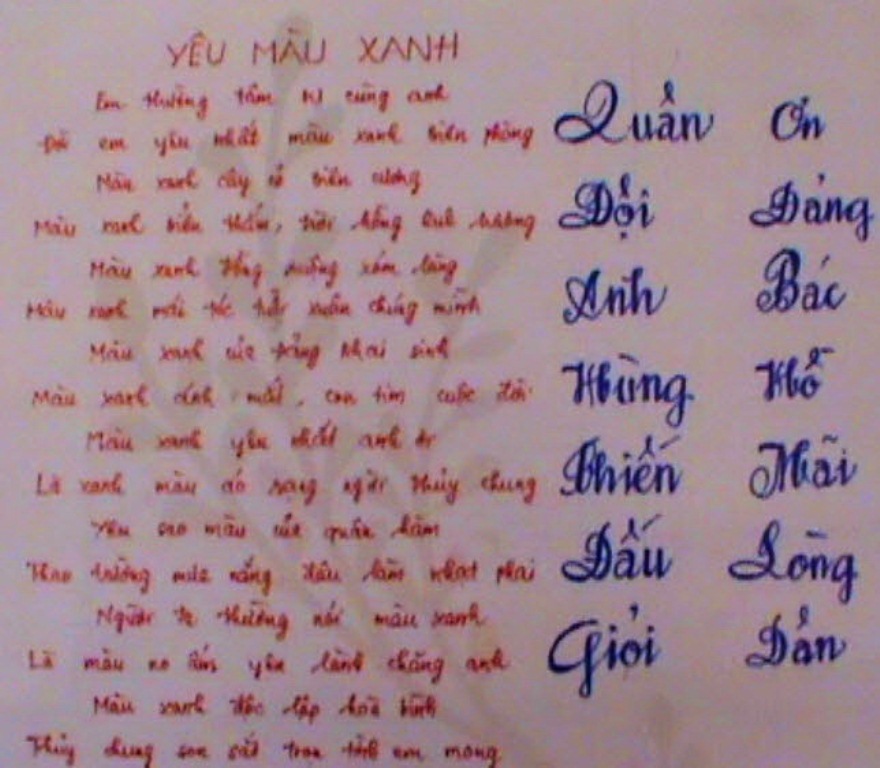 YÊU MÀU XANH
Em thường tâm sự cùng anh
Đời em yêu nhất màu xanh biên phòng
Màu xanh cây cỏ biên cương
Màu xanh biển thẳm, trời hồng quê hương
Màu xanh đồng ruộng xóm làng
Màu xanh mái tóc xuân chúng mình
Màu xanh của khai sinh
Màu xanh ánh mắt, con tim cuộc đời
Màu xanh yêu nhất anh ơi
Là xanh màu áo rạng ngời thủy chung
Yêu sao màu của quân hàm
Thao trường mưa nắng đâu làm nhạt phai
Người ta thường nói màu xanh
Là màu no ấm yên lành chăng anh
Màu xanh độc lập hoà bình
Thủy chung son sắt trọn tình em mong
Quân
Đội
Anh
Hùng
Chiến
Đấu
Giỏi
Ơn
Đảng
Bác
Hồ
Mãi
Lòng
Dân